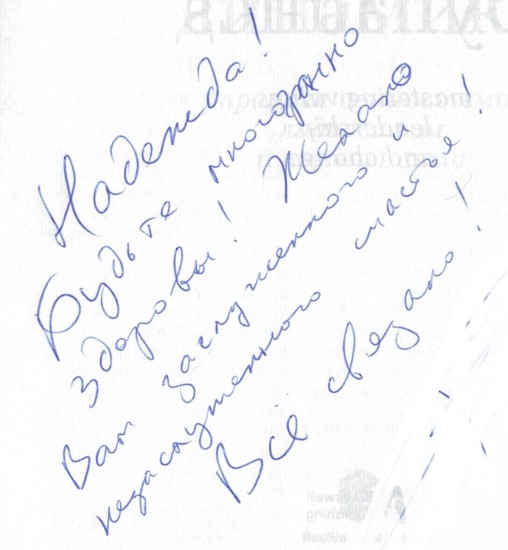 Надежда!
Будьте многогранно
здоровы! Желаю
Вам заслуженного и
незаслуженного счастья!
Всё связано!